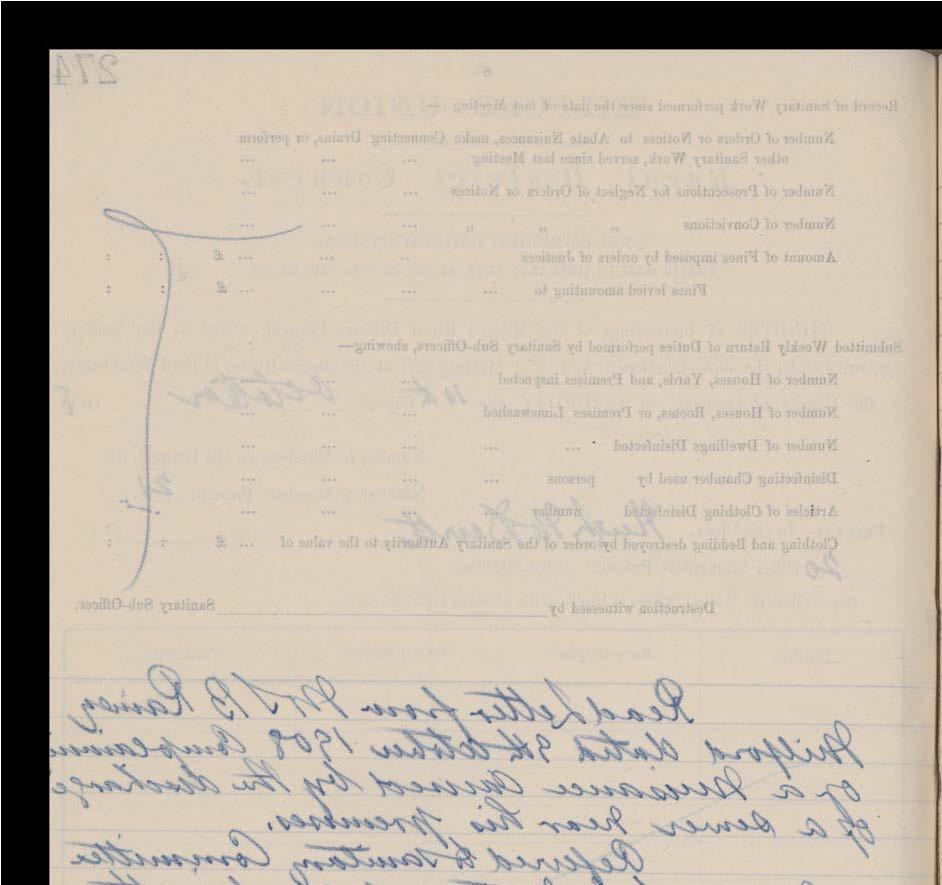 274
8
Record of Sanitary Work performed since the date of last Meeting :—
Number of Orders or Notices to Abate Nuisances, make Connecting Drains, or perform
other Sanitary Work, served since last Meeting ... ... ...
Number of Prosecutions for Neglect of Orders or Notices ... ... ...
Number of Convictions " " " ... ... ...
Amount of Fines imposed by orders of Justices ... ... ... £ : :
Fines levied amounting to ... ... ... ... £ : :
Submitted Weekly Return of Duties performed by Sanitary Sub-Officers, showing—
Number of Houses, Yards, and Premises inspected ... ... ...
Number of Houses, Rooms, or Premises Limewashed ... ... ...
Number of Dwellings Disinfected ... ... ... ... ...
Disinfecting Chamber used by persons ... ... ...
Articles of Clothing Disinfected number ... ... ... ...
Clothing and Bedding destroyed by order of the Sanitary Authority to the value of ... £ : :
Destruction witnessed by Sanitary Sub-Officer.
Read Letter from Mr J B Rainey
Milford dated 9th October 1908 Complaining
of a Nuisance caused by the discharge
of a sewer near his premises.
Referred to Sanitary Committee